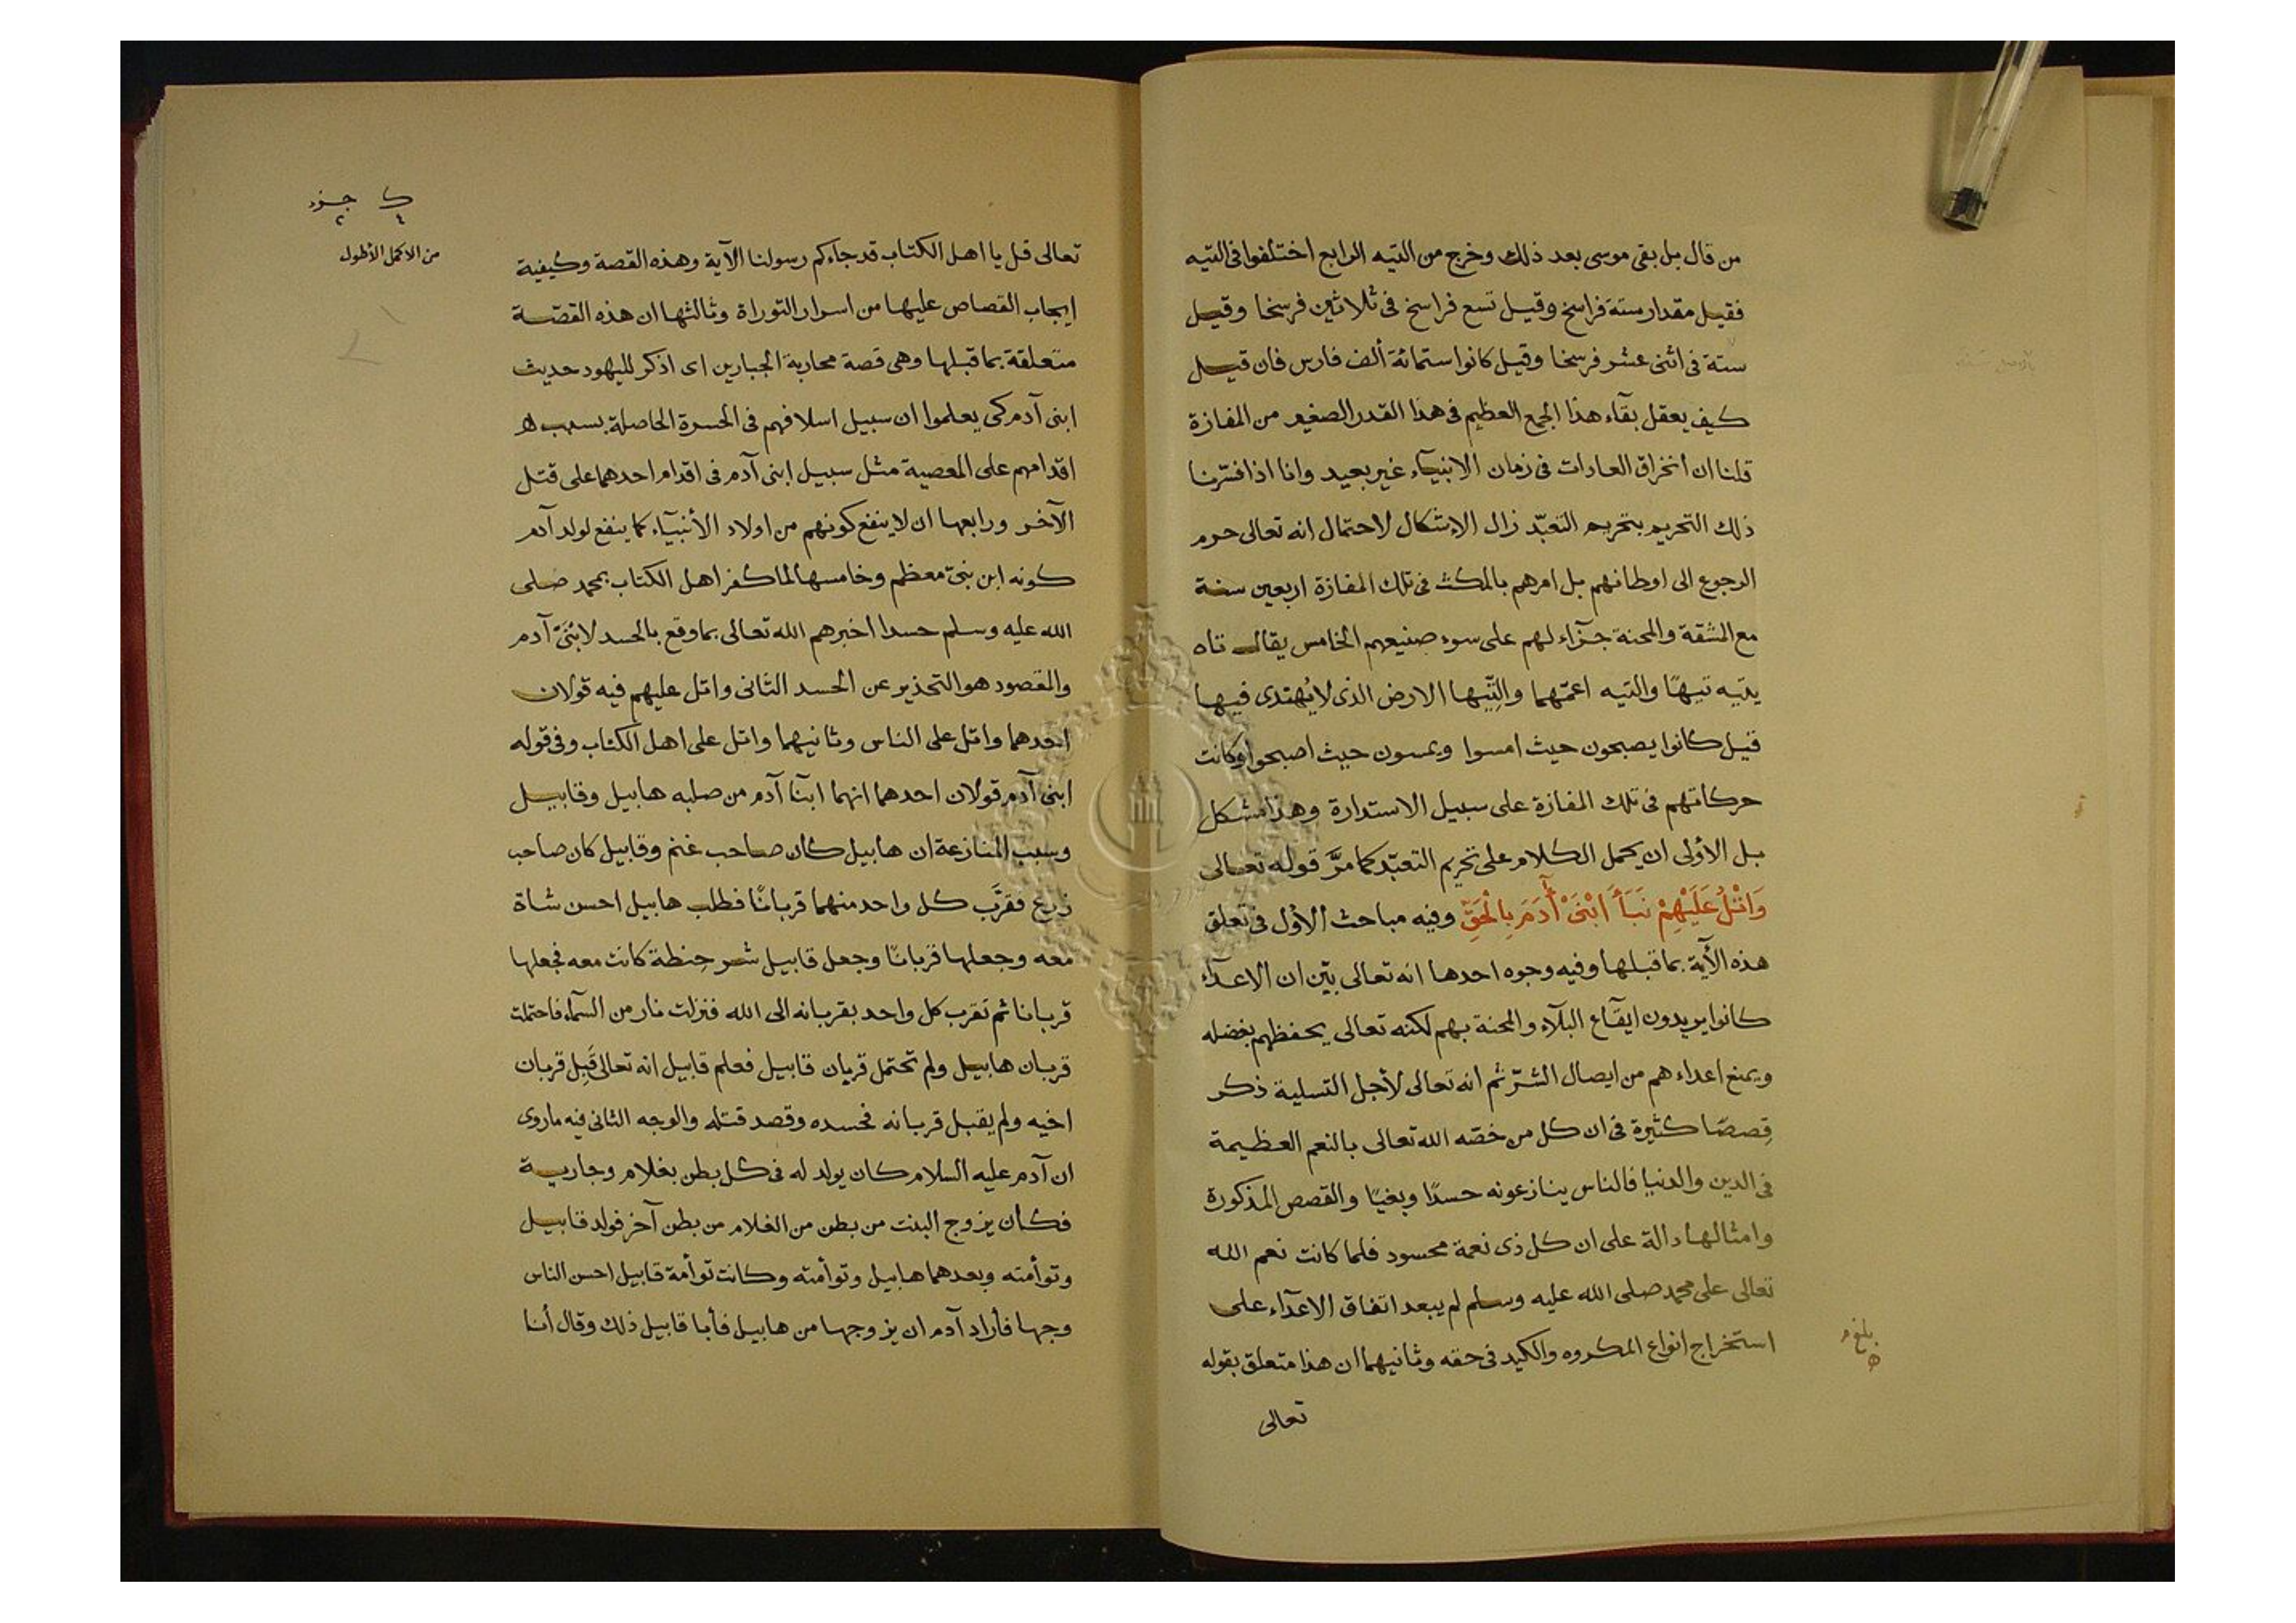 من قال بل بقى موسى بعد ذلك وخرج من التيه الرابع اختلفوا فى التيه
فقيل مقدار ستة فراسخ وقيل تسع فراسخ فى ثلاثين فرسخا وقيل
ستة فى اثنى عشر فرسخا وقيل كانوا ستمائة ألف فارس فان قيل
كيف يعقل بقآء هذا الجمع العظيم فى هذا القدر الصغير من المفازة
قلنا ان انخراق العادات فى زمان الانبيآء غير بعيد وانا اذا فسّرنا
ذلك التحريم بتحريم التعبّد زال الاشكال لاحتمال انه تعالى حرم
الرجوع الى اوطانهم بل امرهم بالمكث فى تلك المفازة اربعين سنة
مع المشقة والمحنة جزآء لهم على سوء صنيعهم الخامس يقال تاه
يتيه تيهًا والتيه اعمّهما والتِّيها الارض الذى لا يُهتدى فيها
قيل كانوا يصبحون حيث امسوا ويمسون حيث اصبحوا وكانت
حركاتهم فى تلك المفازة على سبيل الاستدارة وهذا مشكل
بل الأولى ان يحمل الكلام على تحريم التعبّد كما مرَّ قوله تعالى
وَاتْلُ عَلَيْهِمْ نَبَأَ ابْنَىْ آدَمَ بِالْحَقِّ وفيه مباحث الأول فى تعلق
هذه الآية بما قبلها وفيه وجوه احدها انه تعالى بيّن ان الاعدآء
كانوا يريدون ايقآع البلآء والمحنة بهم لكنه تعالى يحفظهم بفضله
ويمنع اعداءهم من ايصال الشرّ ثم انه تعالى لأجل التسلية ذكر
قِصصًا كثيرة فى ان كل من خصّه الله تعالى بالنعم العظيمة
فى الدين والدنيا فالناس ينازعونه حسدًا وبغيًا والقصص المذكورة
وامثالها دالة على ان كل ذى نعمة محسود فلما كانت نعم الله
تعالى على محمد صلى الله عليه وسلم لم يبعد اتفاق الاعدآء على
استخراج انواع المكروه والكيد فى حقه وثانيهما ان هذا متعلق بقوله
تعالى
بلغ
ك جزء
٤ ٢
من الاكمل الأطول
تعالى قل يا اهل الكتاب قد جاءكم رسولنا الآية وهذه القصة وكيفية
إيجاب القصاص عليها من اسرار التوراة وثالثها ان هذه القصّة
متعلقة بما قبلها وهى قصة محاربة الجبارين اى اذكر لليهود حديث
ابنى آدم كى يعلموا ان سبيل اسلافهم فى الحسرة الحاصلة بسبب
اقدامهم على المعصية مثل سبيل ابنى آدم فى اقدام احدهما على قتل
الآخر ورابعها ان لا ينفع كونهم من اولاد الأنبيآء كما ينفع لولد آدم
كونه ابن نبىّ معظم وخامسها لما كفر اهل الكتاب بمحمد صلى
الله عليه وسلم حسدا اخبرهم الله تعالى بما وقع بالحسد لابْنَىْ آدم
والمقصود هو التحذير عن الحسد الثانى واتل عليهم فيه قولان
احدهما واتل على الناس وثانيهما واتل على اهل الكتاب وفى قوله
ابنى آدم قولان احدهما انهما ابنآ آدم من صلبه هابيل وقابيل
وسبب المنازعة ان هابيل كان صاحب غنم وقابيل كان صاحب
زرع فقرَّب كل واحد منهما قربانًا فطلب هابيل احسن شاة
معه وجعلها قربانًا وجعل قابيل شر حِنطة كانت معه فجعلها
قربانا ثم تقرب كل واحد بقربانه الى الله فنزلت نار من السمآء فاحتملت
قربان هابيل ولم تحتمل قربان قابيل فعلم قابيل انه تعالى قَبِل قربان
اخيه ولم يقبل قربانه فحسده وقصد قتله والوجه الثانى فيه ما روى
ان آدم عليه السلام كان يولد له فى كل بطن بغلام وجارية
فكان يزوج البنت من بطن من الغلام من بطن آخر فولد قابيل
وتوأمته وبعدهما هابيل وتوأمته وكانت توأمة قابيل احسن الناس
وجها فأراد آدم ان يزوجها من هابيل فأبا قابيل ذلك وقال أنا